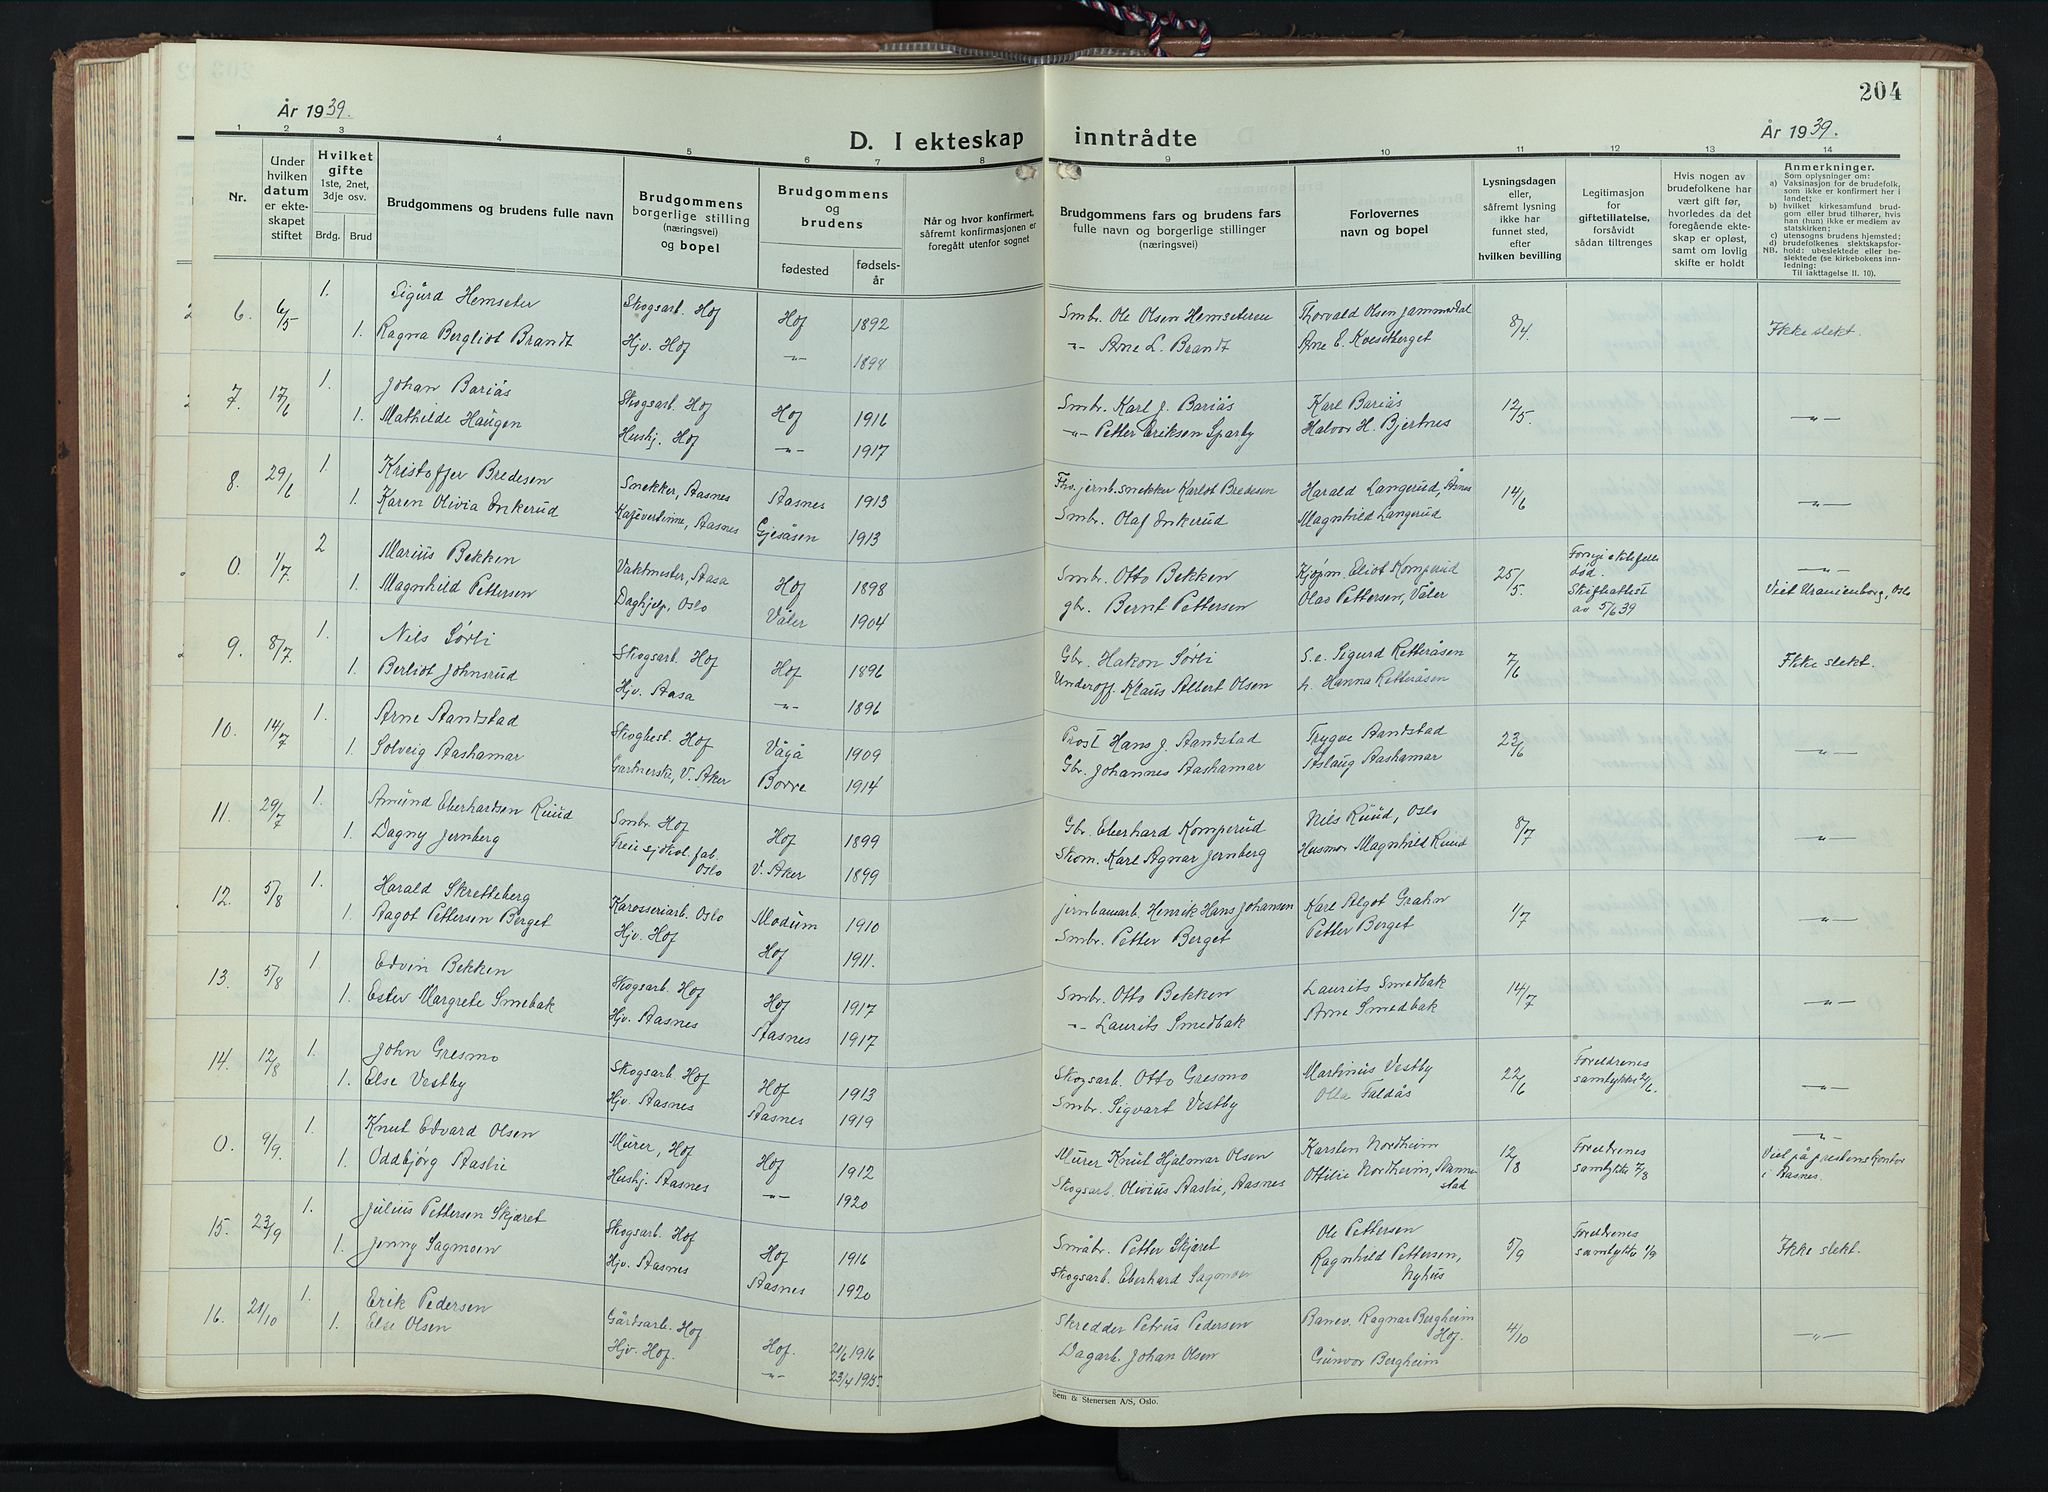 204
År 1939.
År 1939.
D. I ekteskap inntrådte
1 2 3 4 5 6 7 8 9 10 11 12 13 14
Nr.
Under hvilken datum er ekteskapet stiftet
Hvilket gifte 1ste, 2net, 3dje osv.
Brdg. Brud
Brudgommens og brudens fulle navn
Brudgommens borgerlige stilling (næringsvei) og bopel
Brudgommens og brudens
fødested
fødselsår
Når og hvor konfirmert, såfremt konfirmasjonen er foregått utenfor sognet
Brudgommens fars og brudens fars fulle navn og borgerlige stillinger (næringsvei)
Forlovernes navn og bopel
Lysningsdagen eller, såfremt lysning ikke har funnet sted, efter hvilken bevilling
Legitimasjon for giftetillatelse, forsåvidt sådan tiltrenges
Hvis nogen av brudefolkene har vært gift før, hvorledes da det foregående ekteskap er opløst, samt om lovlig skifte er holdt
Anmerkninger.
Som oplysninger om:
a) Vaksinasjon for de brudefolk, som ikke er konfirmert her i landet;
b) hvilket kirkesamfund brudgom eller brud tilhører, hvis han (hun) ikke er medlem av statskirken;
c) utensogns brudens hjemsted;
d) brudefolkenes slektskapsforhold: ubeslektede eller beslektede (se kirkebokens innledning:
NB.
Til iakttagelse II. 10).
6. 6/5 1. Sigurd Hemseter Skogsarb. Hof Hof 1892 Smbr. Ole Olsen Hemseteren Thorvald Olsen Jammerdal 8/4 Ikke slekt.
1. Ragna Bergliot Brandt Hjv. Hof -"- 1898 -"- Arne L. Brandt Arne E. Kveseberget
7. 17/6 1. Johan Bariås Skogsarb. Hof Hof 1916 Smbr. Karl J. Bariås Karl Bariås 12/5. -"-
1. Mathilde Haugen Hushj. Hof -"- 1917 -"- Petter Eriksen Sparby Halvor H. Bjertnes
8. 29/6 1. Kristoffer Bredesen Snekker, Aasnes Aasnes 1913 Fhv. jernb. snekker Karlot Bredesen Harald Langerud, Åsnes 14/6 -"-
1. Karen Olivia Inkerud Kafévertinne, Aasnes Gjesåsen 1913 Smbr. Olaf Inkerud Magnhild Langerud
0. 1/7. 2 Marius Bekken Vaktmester, Aasa Hof 1898 Smbr. Otto Bekken Kjøpm. Eliot Komperud 25/5. Forrige ektefelle død. -"-
1. Magnhild Pettersen Daghjelp, Oslo Våler 1904 gbr. Bernt Pettersen Olav Pettersen, Våler Skifteattest av 5/6 39 Viet Uranienborg, Oslo
9. 8/7. 1. Nils Sørli Skogsarb. Hof Hof 1896 Gbr. Hakon Sørli S.e. Sigurd Retteråsen 7/6 Ikke slekt.
1. Berliot Johnsrud Hjv. Aasa -"- 1896 Underoff. Klaus Albert Olsen h. Hanna Retteråsen
10. 14/7 1. Arne Aandstad Skogbest. Hof Vågå 1909 Prost Hans J. Aandstad Trygve Aandstad 23/6 -"-
1. Solveig Aashamar Gartnerske, V. Aker Borre 1914 Gbr. Johannes Aashamar Aslaug Aashamar
11. 29/7 1. Amund Eberhardsen Ruud Smbr. Hof Hof 1899 Gbr. Eberhard Komperud Nils Ruud, Oslo 8/7 -"-
1. Dagny Jernberg Freia sjokol. fab. Oslo V. Aker 1899 Skom. Karl Agnar Jernberg Husmor Magnhild Ruud
12. 5/8 1. Harald Skretteberg Karosseriarb. Oslo Modum 1910 Jernbanearb. Henrik Hans Johansen Karl Algot Grahn 1/7 -"-
1. Aagot Pettersen Berget Hjv. Hof Hof 1911. Smbr. Petter Berget Petter Berget
13. 5/8 1 Edvin Bekken Skogsarb. Hof Hof 1917 Smbr. Otto Bekken Laurits Smedbak 14/7 -"-
1. Ester Margrete Smebak Hjv. Aasnes Aasnes 1917 -"- Laurits Smedbak Arne Smedbak
14. 12/8 1. John Gresmo Skogsarb. Hof Hof 1913 Skogsarb. Otto Gresmo Martinius Vestby 22/6 Foreldrenes samtykke 2/6. -"-
1. Else Vestby Hjv. Aasnes Aasnes 1919 Smbr. Sigvart Vestby Olla Faldås
0. 9/9. 1. Knut Edvard Olsen Murer, Hof Hof 1912 Murer Knut Hjalmar Olsen Karsten Nordheim 12/8 Foreldrenes samtykke 7/8 -"-
1. Oddbjørg Aaslie Hushj. Aasnes -"- 1920 Skogsarb. Olivius Aaslie, Aasnes Ottilie Nordheim, Viet på prestens kontor i Aasnes.
15. 23/9 1. Julius Pettersen Skjæret Skogsarb. Hof Hof 1916 Småbr. Petter Skjæret Ole Pettersen 5/9 Foreldrenes samtykke 1/9 Ikke slekt.
1. Jenny Sagmoen Hjv. Aasnes Aasnes 1920 Skogsarb. Eberhard Sagmoen Ragnhild Pettersen, Nyhus
16. 21/10 1. Erik Pedersen Gårdsarb. Hof Hof. 21/6 1916 Skredder Petrus Pedersen Banev. Ragnar Bergheim Hof. 4/10 -"-
1. Else Olsen Hjv. Hof. -"- 23/4 1915. Dagarb. Johan Olsen Gunvor Bergheim
Sem & Stenersen A/S, Oslo.